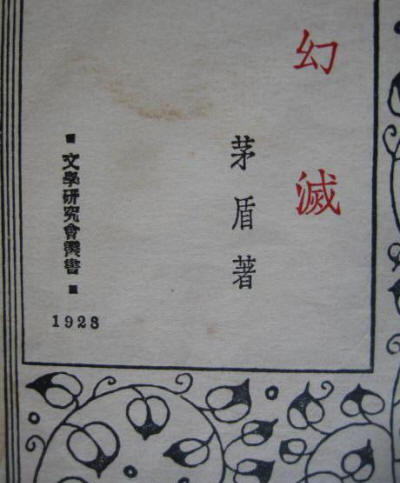 幻滅
茅盾著
文學研究會叢書
1928